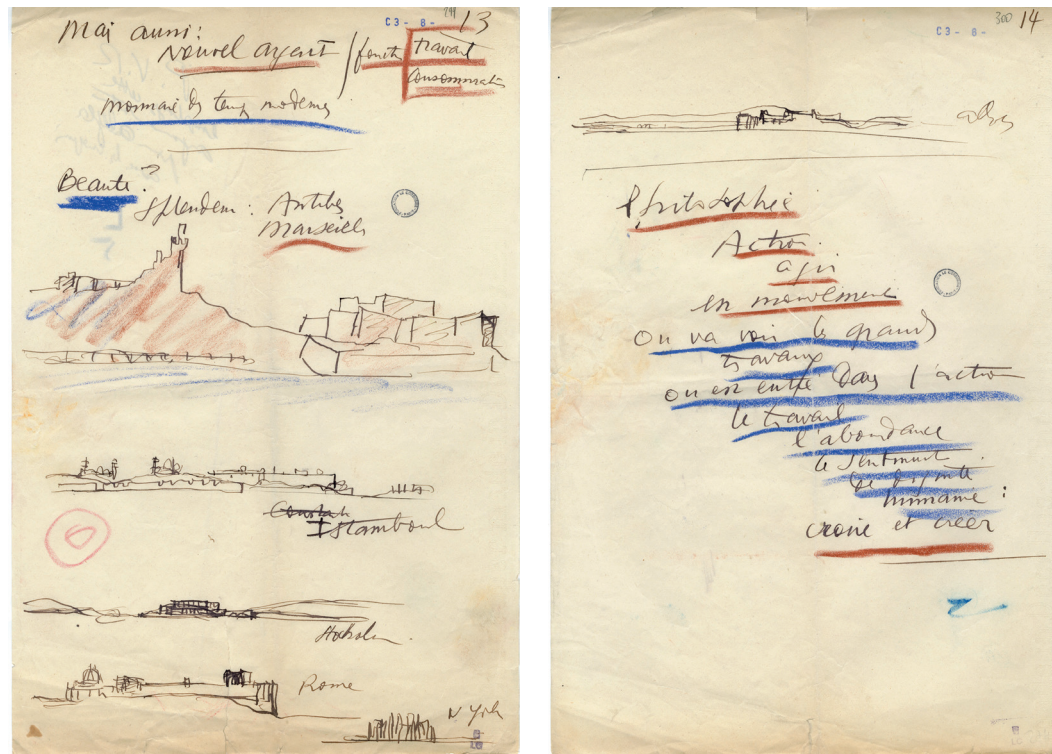 C3- 8-
299
13
Mais aussi:
Nouvel argent / fonction travail
consommation
monnaie des temps modernes
Beauté?
Splendeur: Antibes
Marseille
Istamboul
Rome
N York
300
14
C3- 8-
philosophie
Action
agir
en mouvement
on va voir les grands
travaux
on est entré dans l'action
le travail
l'abondance
le sentiment
de dignité
humaine:
croire et créer